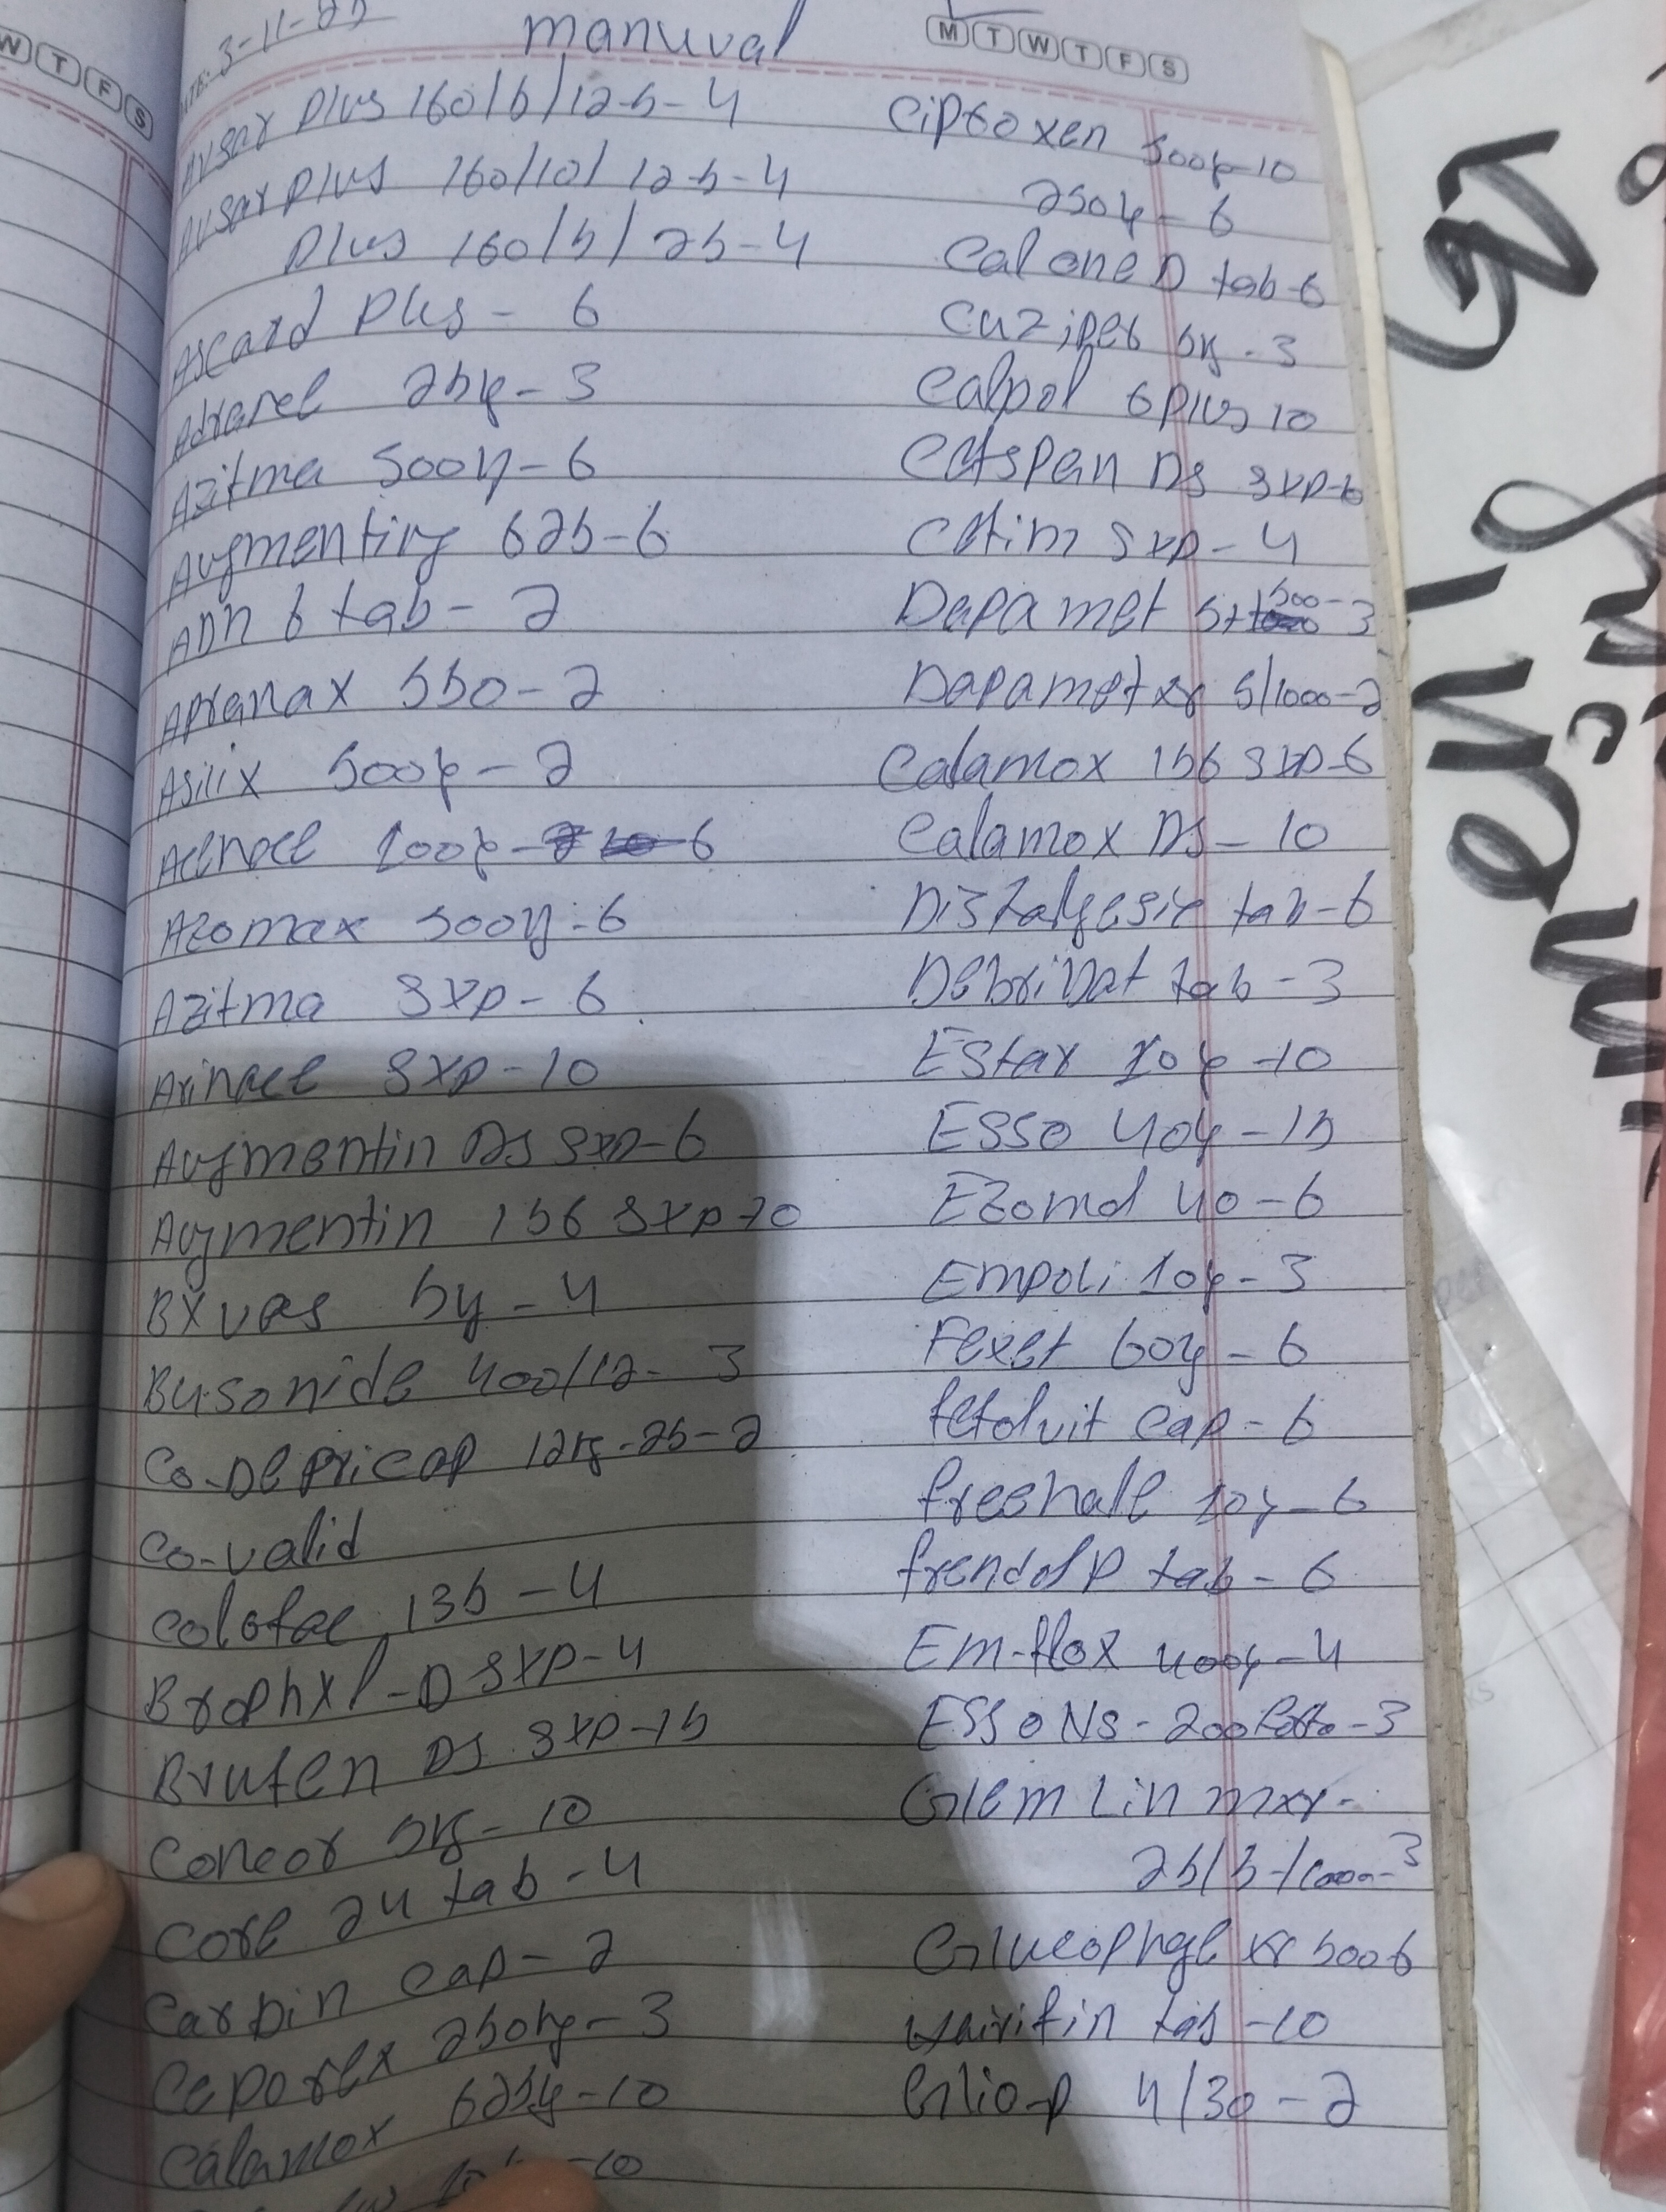 W T F S
DATE: 3-11-22
manuval
M T W T F S
Avsar Plus 160/5/12.5-4
Avsar Plus 160/10/12.5-4
Plus 160/5/25-4
Ascard Plus - 6
25g-3
Azitma 500g-6
Augmenting 625-6
ADN 6 tab-2
Apranax 550-2
Asilix 500g-2
100g- 6
Azomax 500g-6
Azitma syp-6
Arinaee syp-10
Augmentin DS syp-6
Augmentin 156 syp-10
Byvas 5g-4
Busonide 400/12-3
Co-Depricap 12g-25-2
Co-valid
Colofac 135-4
Brophyl-D syp-4
Brufen DS syp-15
Concor 5g-10
Core 24 tab-4
Carbin cap-2
Ceporex 250g-3
Calamox 625g-10
-10
Ciproxen 500g-10
250g-6
Cal one D tab-6
5g-3
Calpol 6 plus 10
Cefspan DS syp-6
Cefim syp-4
Dapa met 5/500-3
Dapamet xr 5/1000-2
Calamox 156 syp-6
Calamox DS-10
Distalgesic tab-6
Debridat tab-3
Estar 10g-10
Esso 40g-15
Ezomol 40-6
Empoli 10g-3
Fexet 60g-6
fefolvit cap-6
freehale 10g-6
frendol P tab-6
Em-flox 400g-4
Esso NS-200 -3
Glem Lin mxr-
25/5/1000-3
Glucophage xr 500 6
tab-10
Glio-p 4/30-2